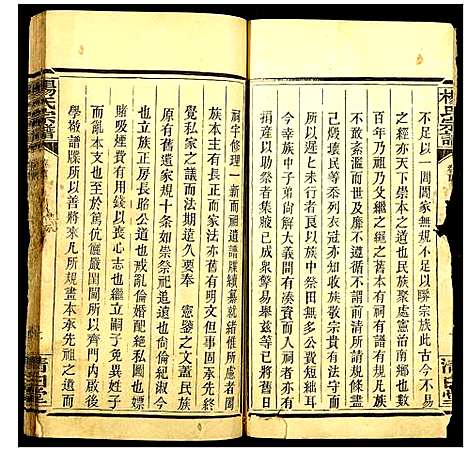 楊氏宗譜
不足以一閭閻家無規不足以睦宗族此古今不易
之經亦天下崇本之道也民族聚處憲治南鄉也數
百年乃祖乃父繼之經之舊有家規十條但本因
太於紊濫而世及靡不遵循不謂前清所請規條
己廢壞民等忝列衣冠亦知收族敬宗貴有祠法
以示將來者良以族中祭田無多公費短絀耳
今幸族中子弟尚解大義間有湊資入祠者亦有
捐產以助祭者集腋已成眾擎易舉茲等已將舊日
清白堂
祠宇修理一新而祠遺譜牒續纂就緒惟所慮者闔
族本主有長正而家法亦舊有明文但事固承先終
覺私家之議而法期遠久要奉 憲鑒之文蓋民族
原有舊遺家規十条如崇祭祀道遺也尙倫紀淑今
也立族正房長昭公道也戒亂倫婚配絕私圖也嫖
賭吸煙費有用錢以喪心志也繼立嗣子免異姓子
而亂本支也至於篤伉儷嚴閨閫所以齊門內啟後
學緻譜牒所以善將來凡所規畫本承先祖之遺而
楊氏宗譜
清白堂